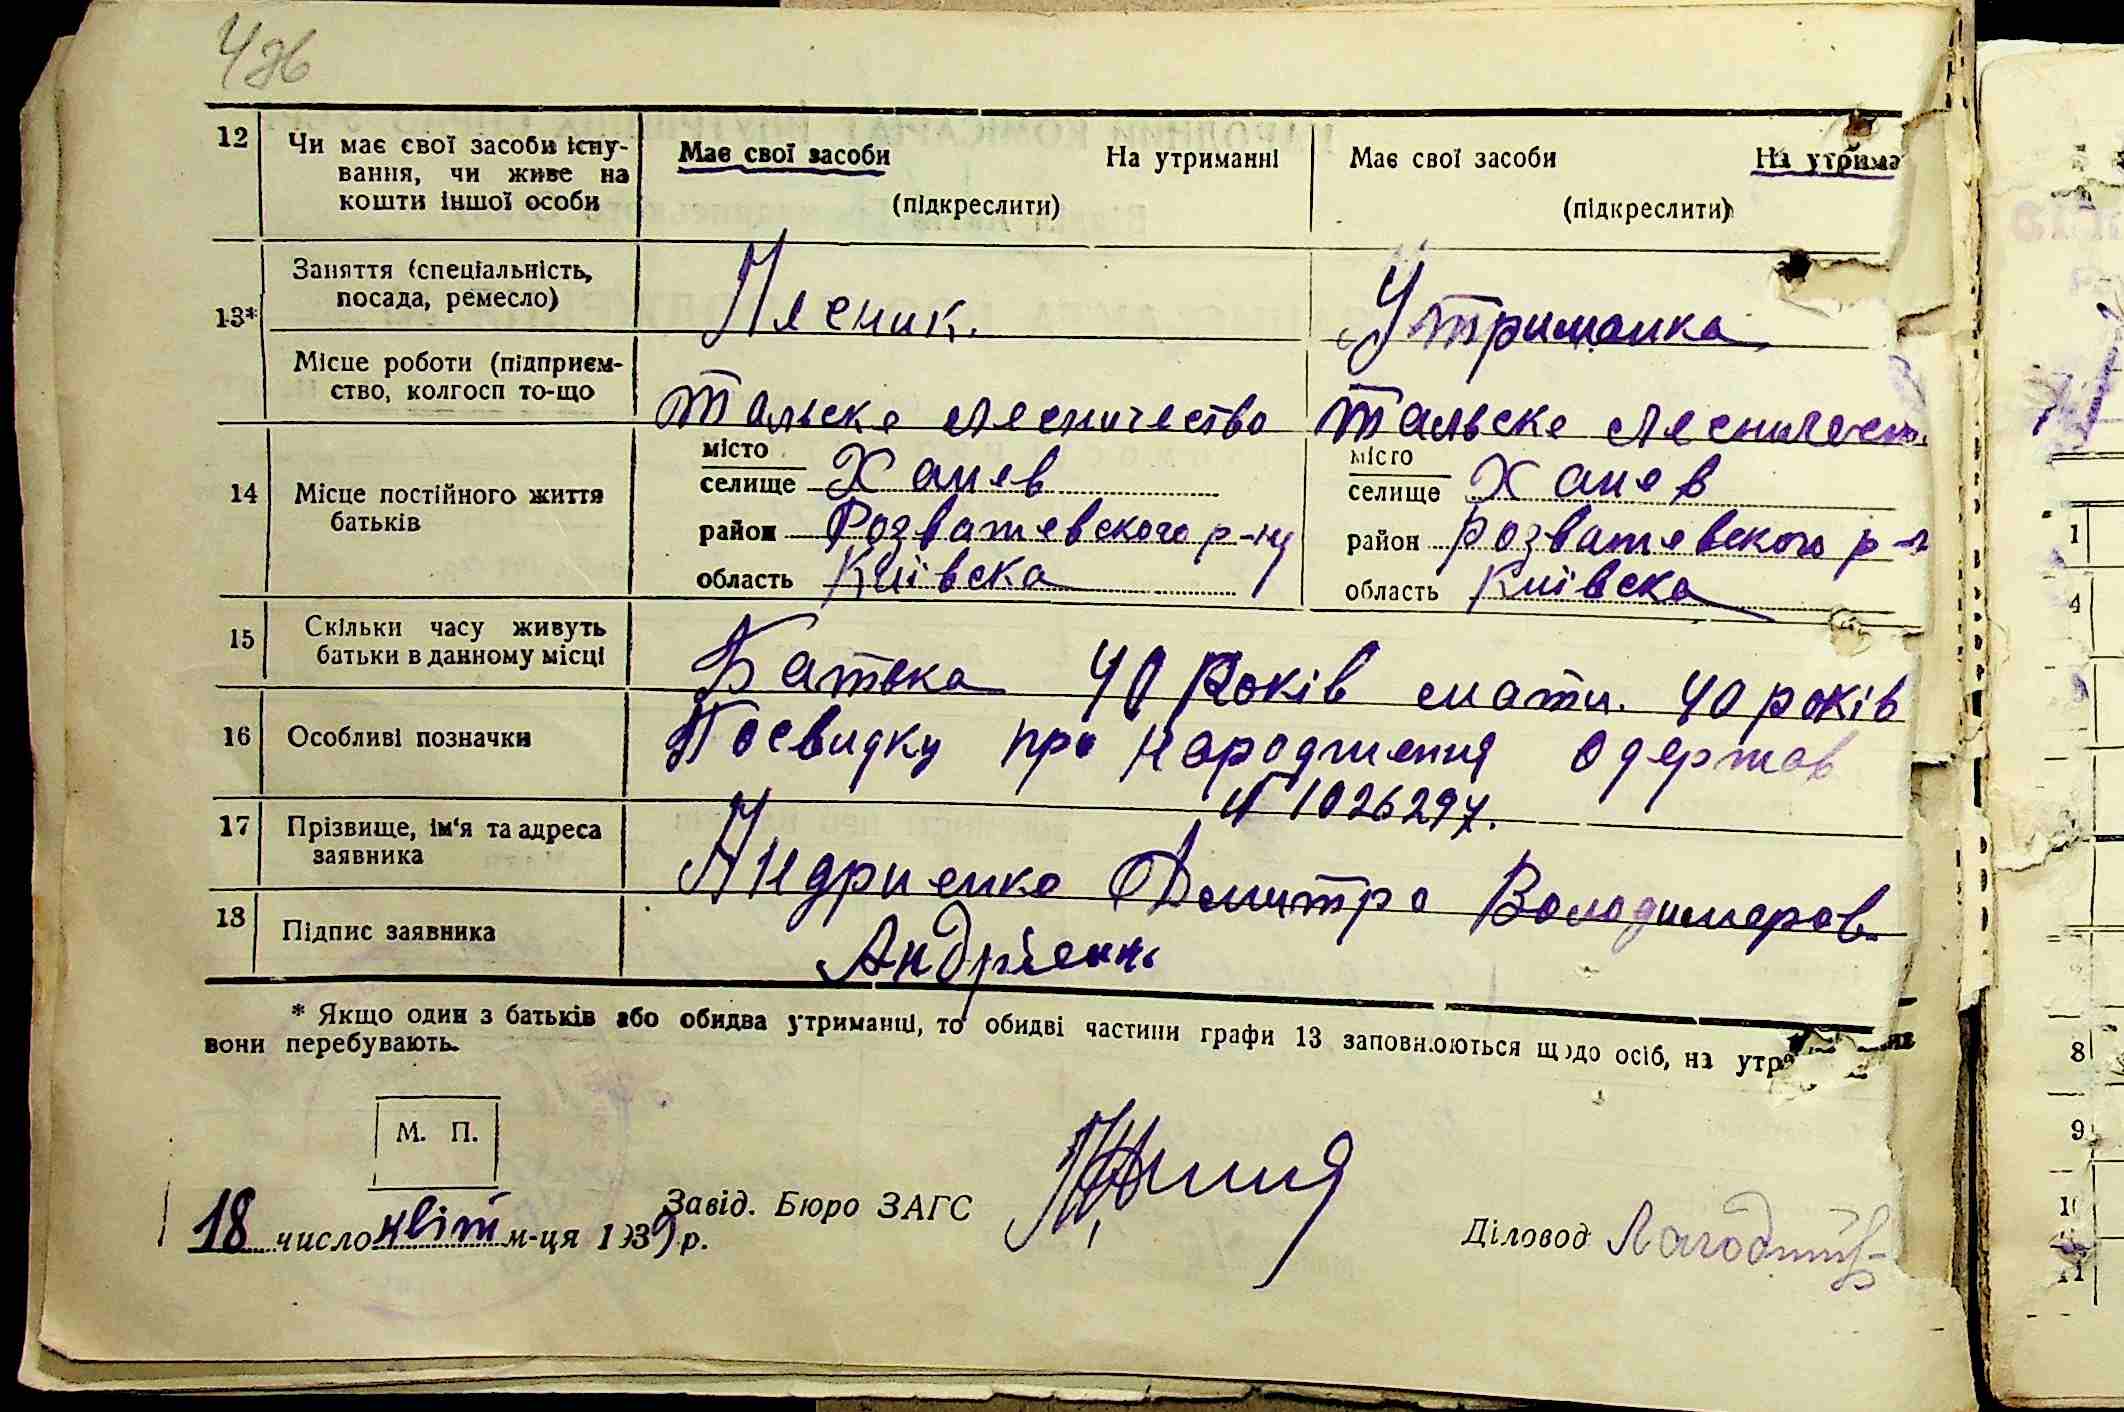 12 Чи має свої засоби існу-
вання, чи живе на
кошти іншої особи
Має свої засоби На утриманні
(підкреслити)
Має свої засоби На утрима
(підкреслити)
13*
Заняття (спеціальність,
посада, ремесло)
Лясник.
Утриманка
Місце роботи (підприєм-
ство, колгосп то-що
Тальске лясничество
Тальске
14 Місце постійного життя
батьків
місто
селище Ханев
район Розважевского р-ну
область Київска
місто
селище Ханев
район Розважевского р-
область Київска
15 Скільки часу живуть
батьки в данному місці
Батька 40 Років мати. 40 років
16 Особливі позначки
Посвидку про народження одержав
№ 1026297.
17 Прізвище, ім'я та адреса
заявника
Андриенко Дмитро Володимеров
18 Підпис заявника
Андрієнк
* Якщо один з батьків або обидва утриманці, то обидві частини графи 13 заповнюються щодо осіб, на утр
вони перебувають.
М. П.
18 число квіт м-ця 1939 р.
Завід. Бюро ЗАГС
Діловод
1
4
8
9
10
11